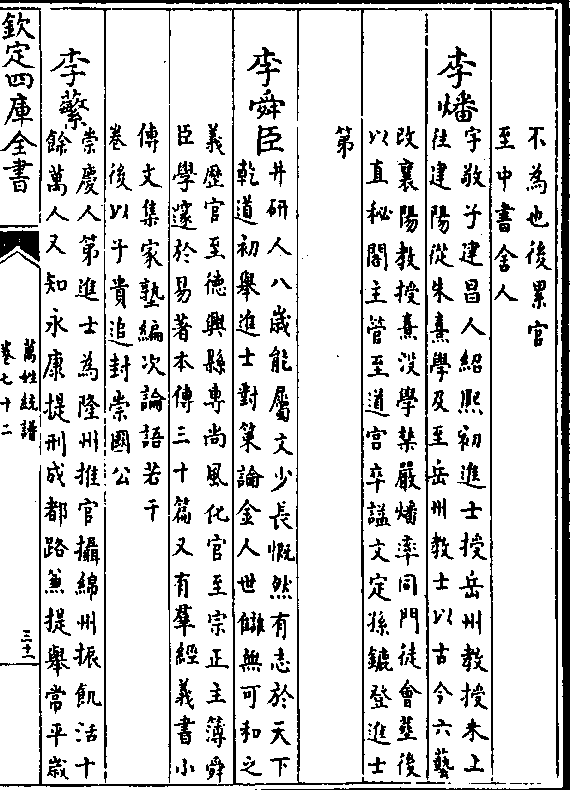 不為也後累官
至中書舍人
李燔
字敬子建昌人紹熙初進士授岳州教授未上
往建陽從朱熹學及至岳州教士以古今六藝
改襄陽教授熹没學禁嚴燔率同門徒會塟後
以直秘閣主管至道宫卒諡文定孫鑣登進士
第
李舜臣
井研人八歳能屬文少長慨然有志於天下
乾道初舉進士對策論金人世讎無可和之
義歴官至德興縣専尚風化官至宗正主簿舜
臣學邃於易著本傳三十篇又有羣經義書小
傳文集家塾編次論語若干
卷後以子貴追封崇國公
李蘩
崇慶人第進士為隆州推官攝綿州振飢活十
餘萬人又知永康提刑成都路兼提舉常平歳
欽定四庫全書
萬姓統譜
卷七十二
三十